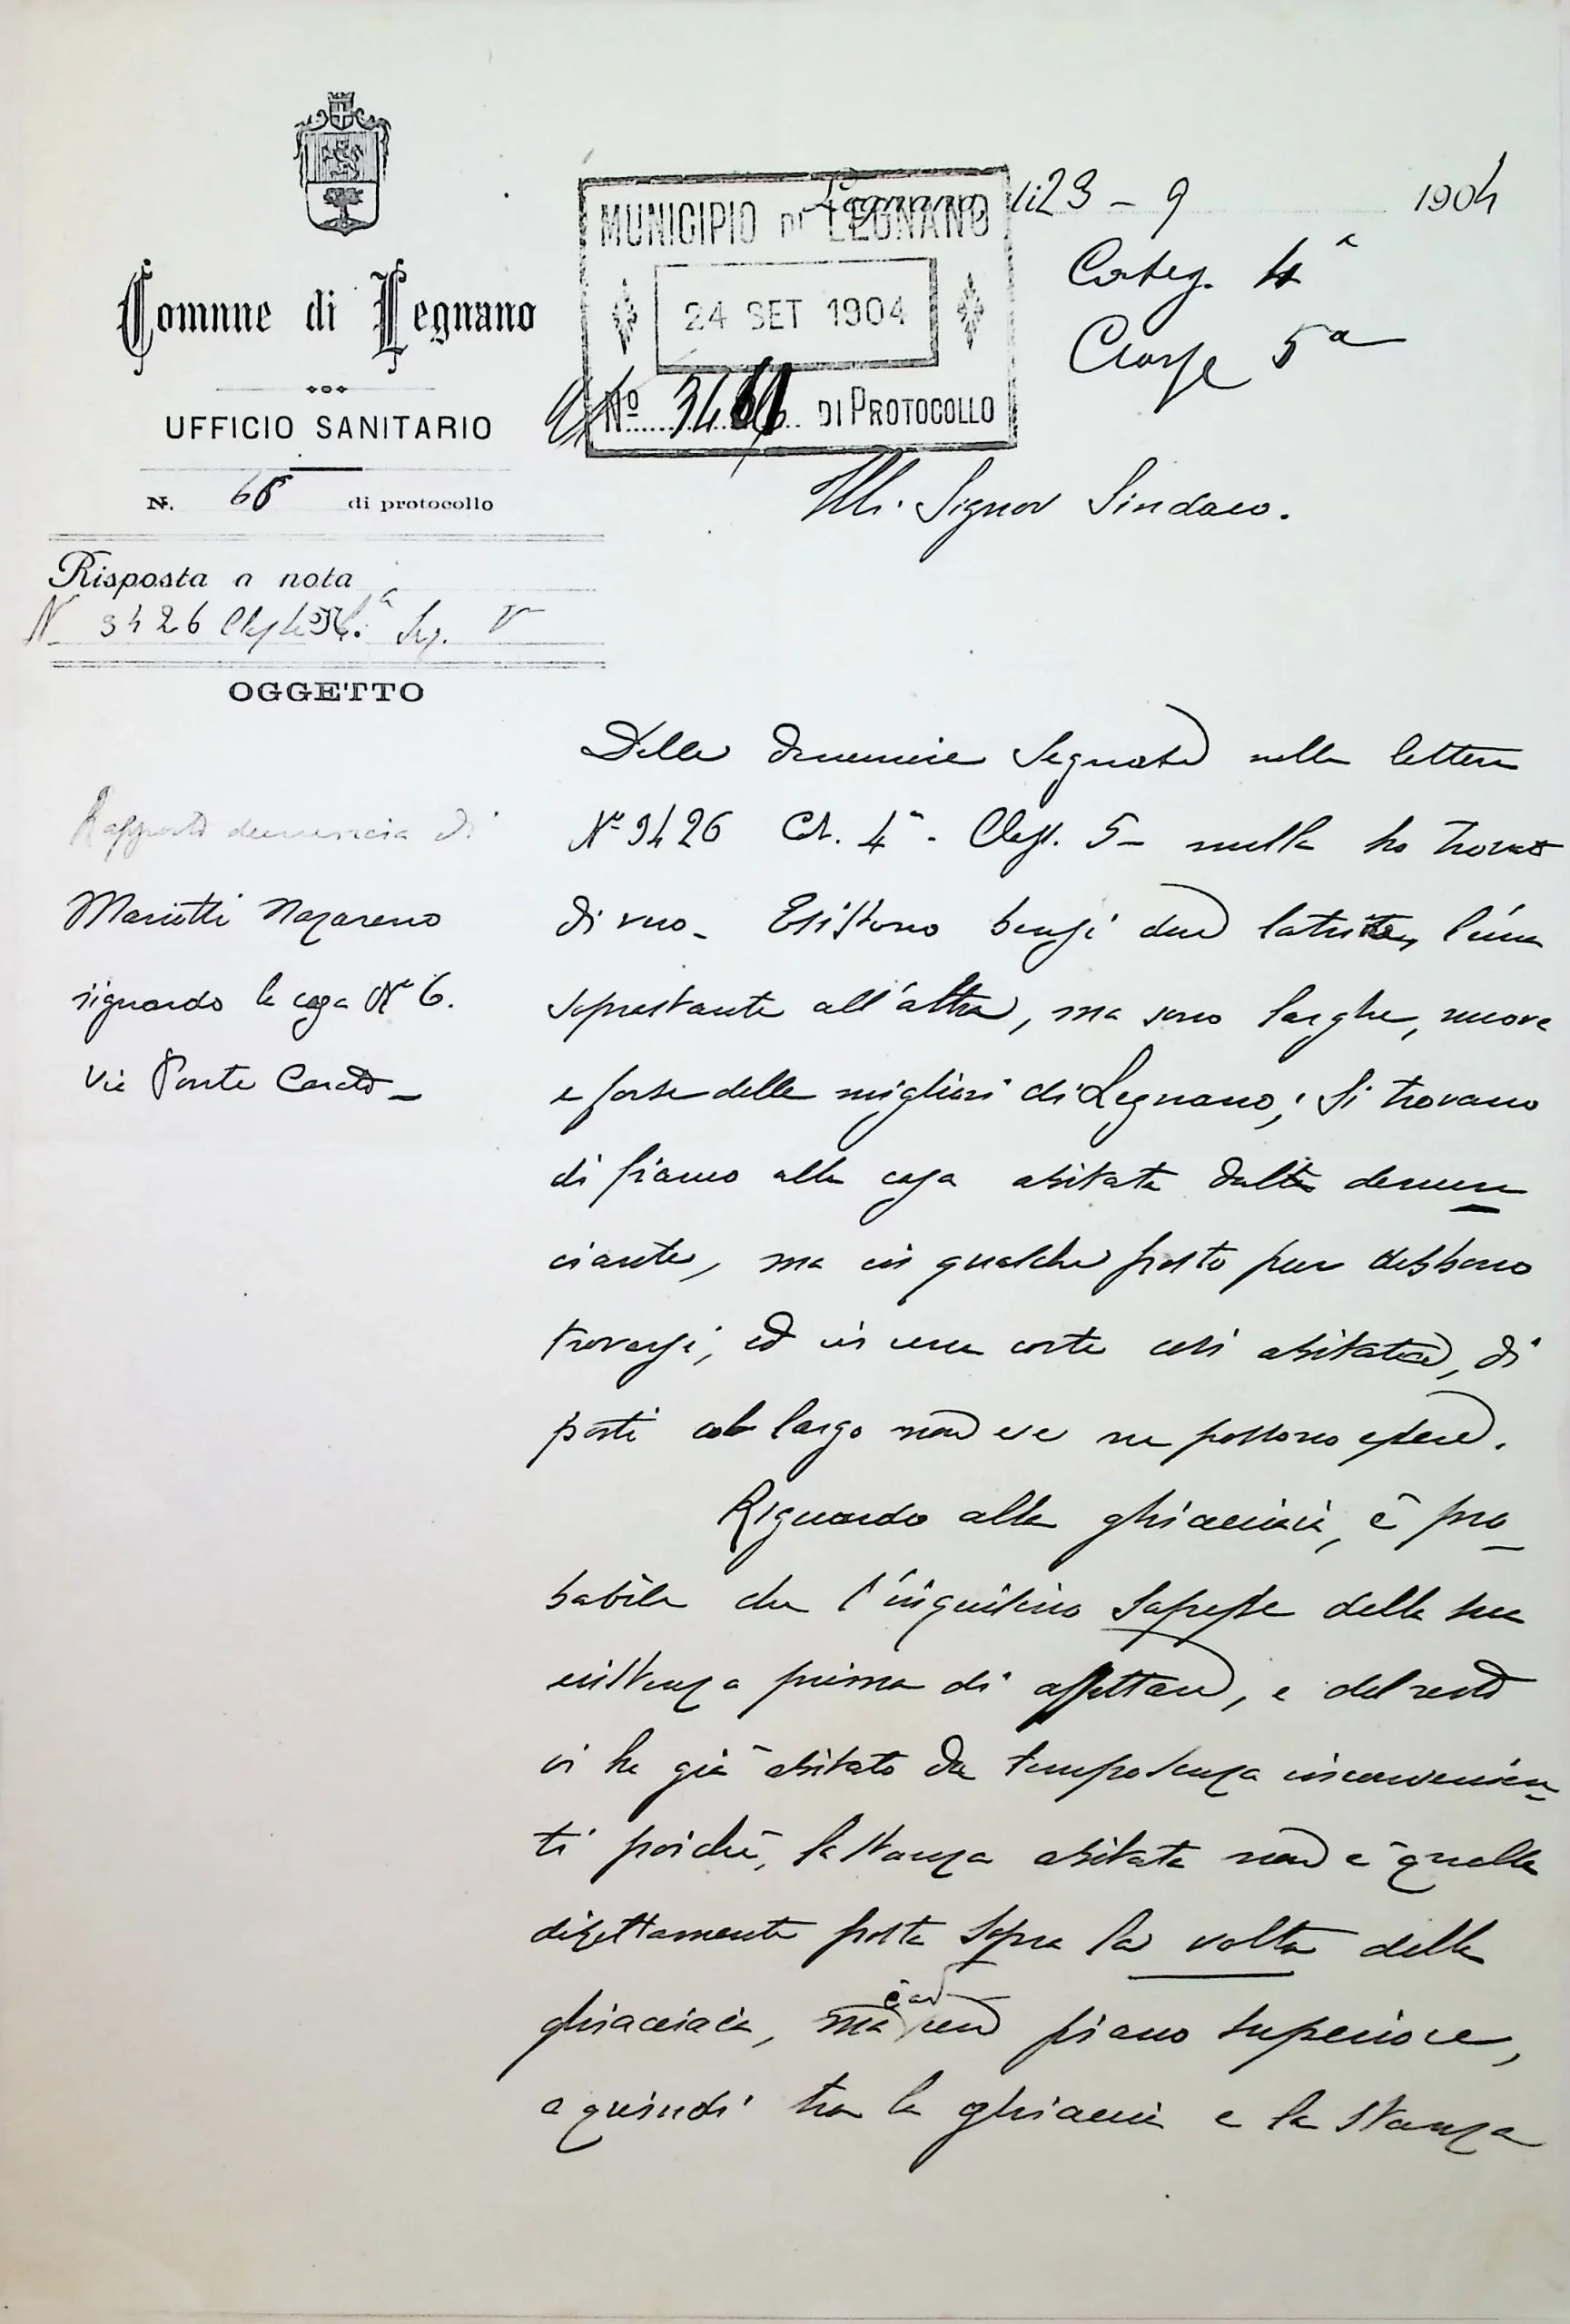 Comune di Legnano
UFFICIO SANITARIO
N. 65 di protocollo
Risposta a nota
N 3426
OGGETTO
Rapporto denuncia di
Mariotti Nazareno
riguardo la casa N° 6.
Via Ponte Carato
Legnano, li 23 - 9 1904
MUNICIPIO DI LEGNANO
24 SET 1904
No DI PROTOCOLLO
Categ. 4a
Classe 5a
Ill. Signor Sindaco.
Delle denuncie segnate nella lettera
N° 3426 Cat. 4a - Class. 5 - nulla ho trovato
di vero - Esistono bensi due latrine, l'una
soprastante all'altra, ma sono larghe, nuove
e forse delle migliori di Legnano; si trovano
di fianco alla casa abitata dal denun
ciante, ma in qualche posto pur debbono
trovarsi, ed in una corte così abitata, di
posti al largo non ve ne possono essere.
Riguardo alla ghiacciaia, è pro
babile che l'inquilino sapesse della sua
esistenza prima di affittare, e del resto
vi ha già abitato da tempo senza inconvenien
ti poichè, la stanza abitata non è quella
direttamente posta sopra la volta della
ghiacciaia, ma è ad un piano superiore,
e quindi tra la ghiacciaia e la stanza